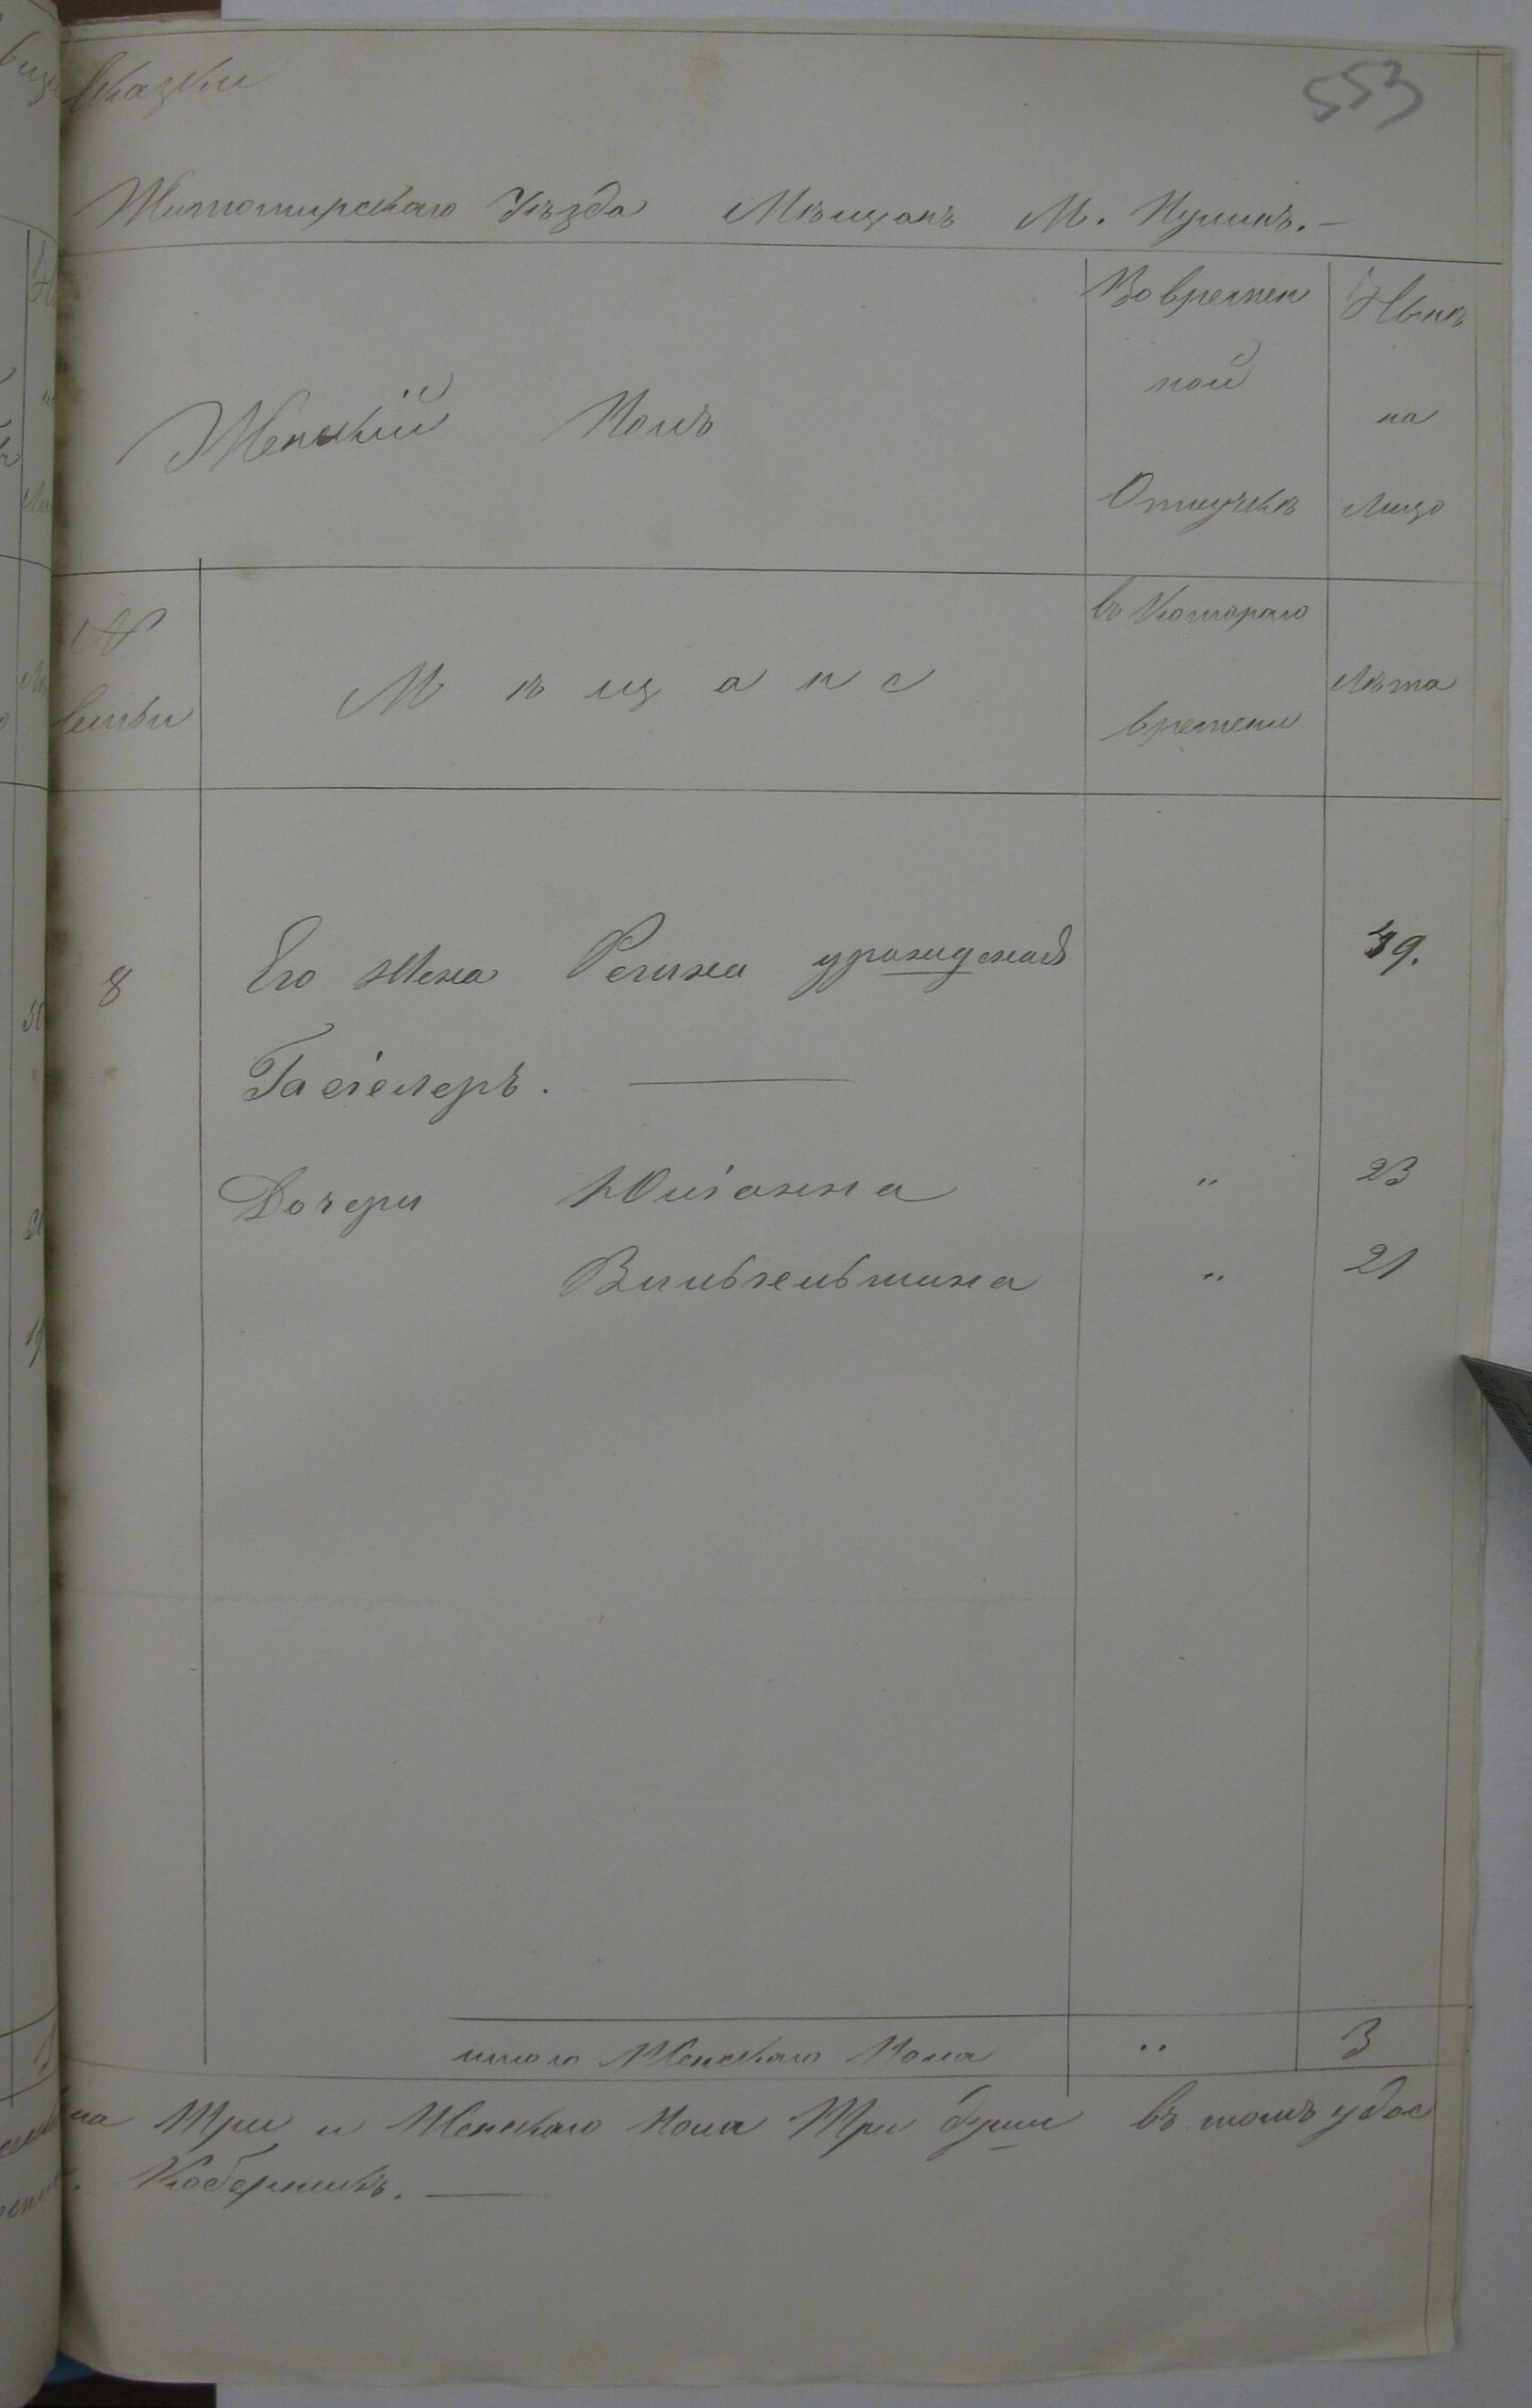 Сказки
553
Житомирскаго Уѣзда Мѣщанъ М. Пулинъ.—
Женскій Полъ
Во времен
ной
Отлучкѣ
Нынѣ
на
лицо
№
Семьи
Мѣщане
съ Котораго
времени
Лѣта
8 Его Жена Регина урожденая 49.
Дочери Юліанна " 23
Вильгельмина " 21
итого Женскаго Пола " 3
ла Три и Женскаго пола Три души въ томъ удос